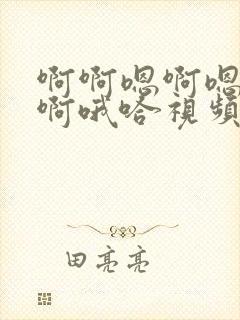 啊啊嗯啊嗯
啊哦哈视频
田亮亮